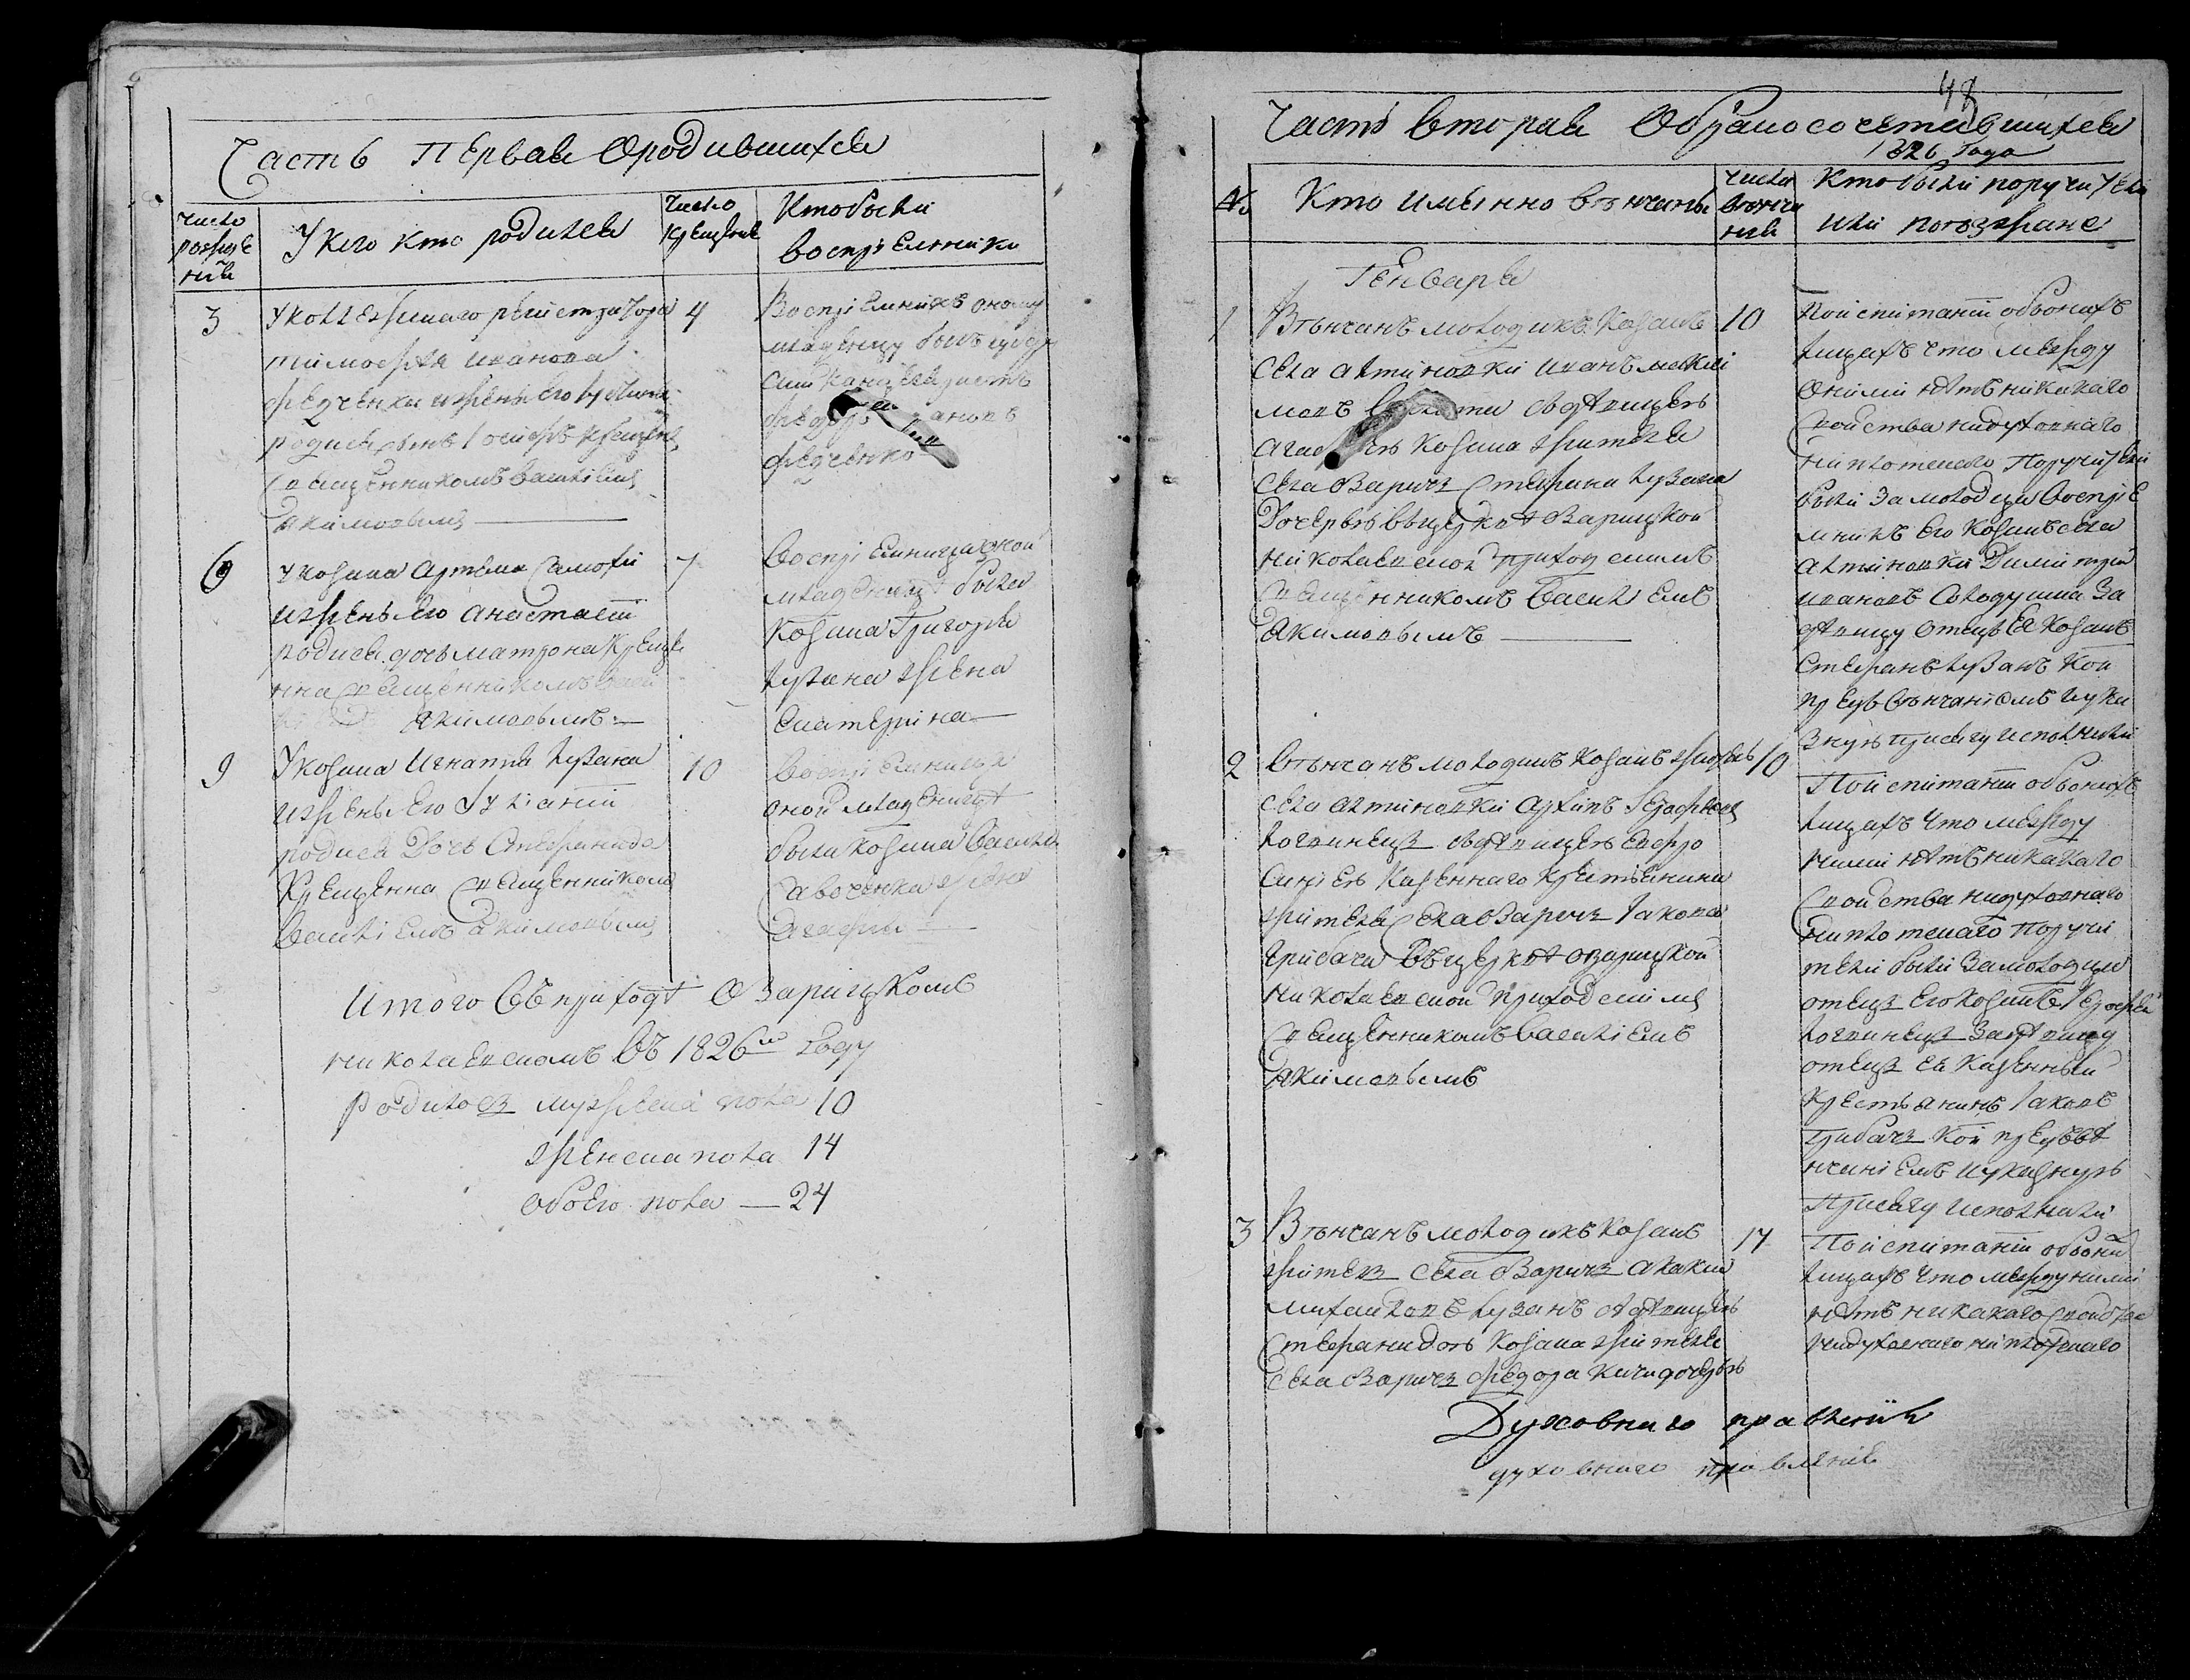 Часть Первая О родившихся
Число рождения
У кого кто родился
Число крещения
Кто были
восприемники
3
У коллежскаго регистратора
Тимофея Иванова
Федченки и жены его
родися сынъ Іосифъ крещенъ
священникомъ Василіемъ
Якимовымъ
4
Воспріемникъ оному
младенцу былъ
канцеляристъ
Федоръ
Федченко
6
У козака Артема Самохи
и жены его Анастасіи
родися дочь Матрона креще
нна священникомъ
Якимовымъ
7
Воспріемницею оной
младеницы была
козака Григорія
Лузана жена
Екатерина
9
У козака Игнатія Лузана
и жены его Уліаніи
родися дочь Стефанида
крещенна священникомъ
Василіемъ Якимовымъ
10
Воспріемница
оной младеницѣ
была козака Василія
Савченка жена
Агафія
Итого въ приходѣ Озарицкомъ
Николаевскомъ въ 1826м году
родилось мужеска пола 10
женска пола 14
обоего пола — 24
48
Часть вторая О бракосочетавшихся
1826 года
№
Кто именно вѣнчаны
Число вѣнчания
Кто были поручители
или поѣзжане
Генваря
1
Вѣнчанъ молодикъ козакъ
села Алтиновки Иванъ
съ дѣвицею
козака жителя
села Озаричъ Стефана Лузана
дочерью въ церквѣ Озарицкой
Николаевской приходскимъ
священникомъ Василіемъ
Якимовымъ
10
По испитаніи о обоихъ
лицахъ что между
оними нѣтъ никакаго
свойства ни духовнаго
ни плотскаго поручители
были за молодика воспріе
мникъ его козакъ села
Алтиновки Димитрій
Ивановъ Солодушка за
дѣвицу отецъ ея козакъ
Стефанъ Лузанъ кои
предъ вѣнчаніемъ и ука
зную присягу исполнили
2
Вѣнчанъ молодикъ козакъ житель
села Алтиновки Архипъ
Логвинецъ съ дѣвицею Евфро
синіею казеннаго крестьянина
жителя села Озаричъ Іакова
Грибача въ церквѣ Озарицкой
Николаевской приходскимъ
священникомъ Василіемъ
Якимовымъ
10
По испитаніи о обоихъ
лицахъ что между
ними нѣтъ никакаго
свойства ни духовнаго
ни плотскаго поручи
тели были за молодика
отецъ его козакъ
Логвинецъ за дѣвицу
отецъ ея казенный
крестьянинъ Іаковъ
Грибачъ кои предъ вѣ
нчаніемъ и указную
присягу исполнили
3
Вѣнчанъ молодикъ козакъ
житель села Озаричъ Акакій
Михайловъ Лузанъ съ дѣвицею
Стефанидою козака жителя
села Озаричъ Федора Кичи дочерью
17
По испитаніи о обоихъ
лицахъ что между ними
нѣтъ никакаго свойства
ни духовнаго ни плотскаго
Духовнаго правленія
духовнаго правленія